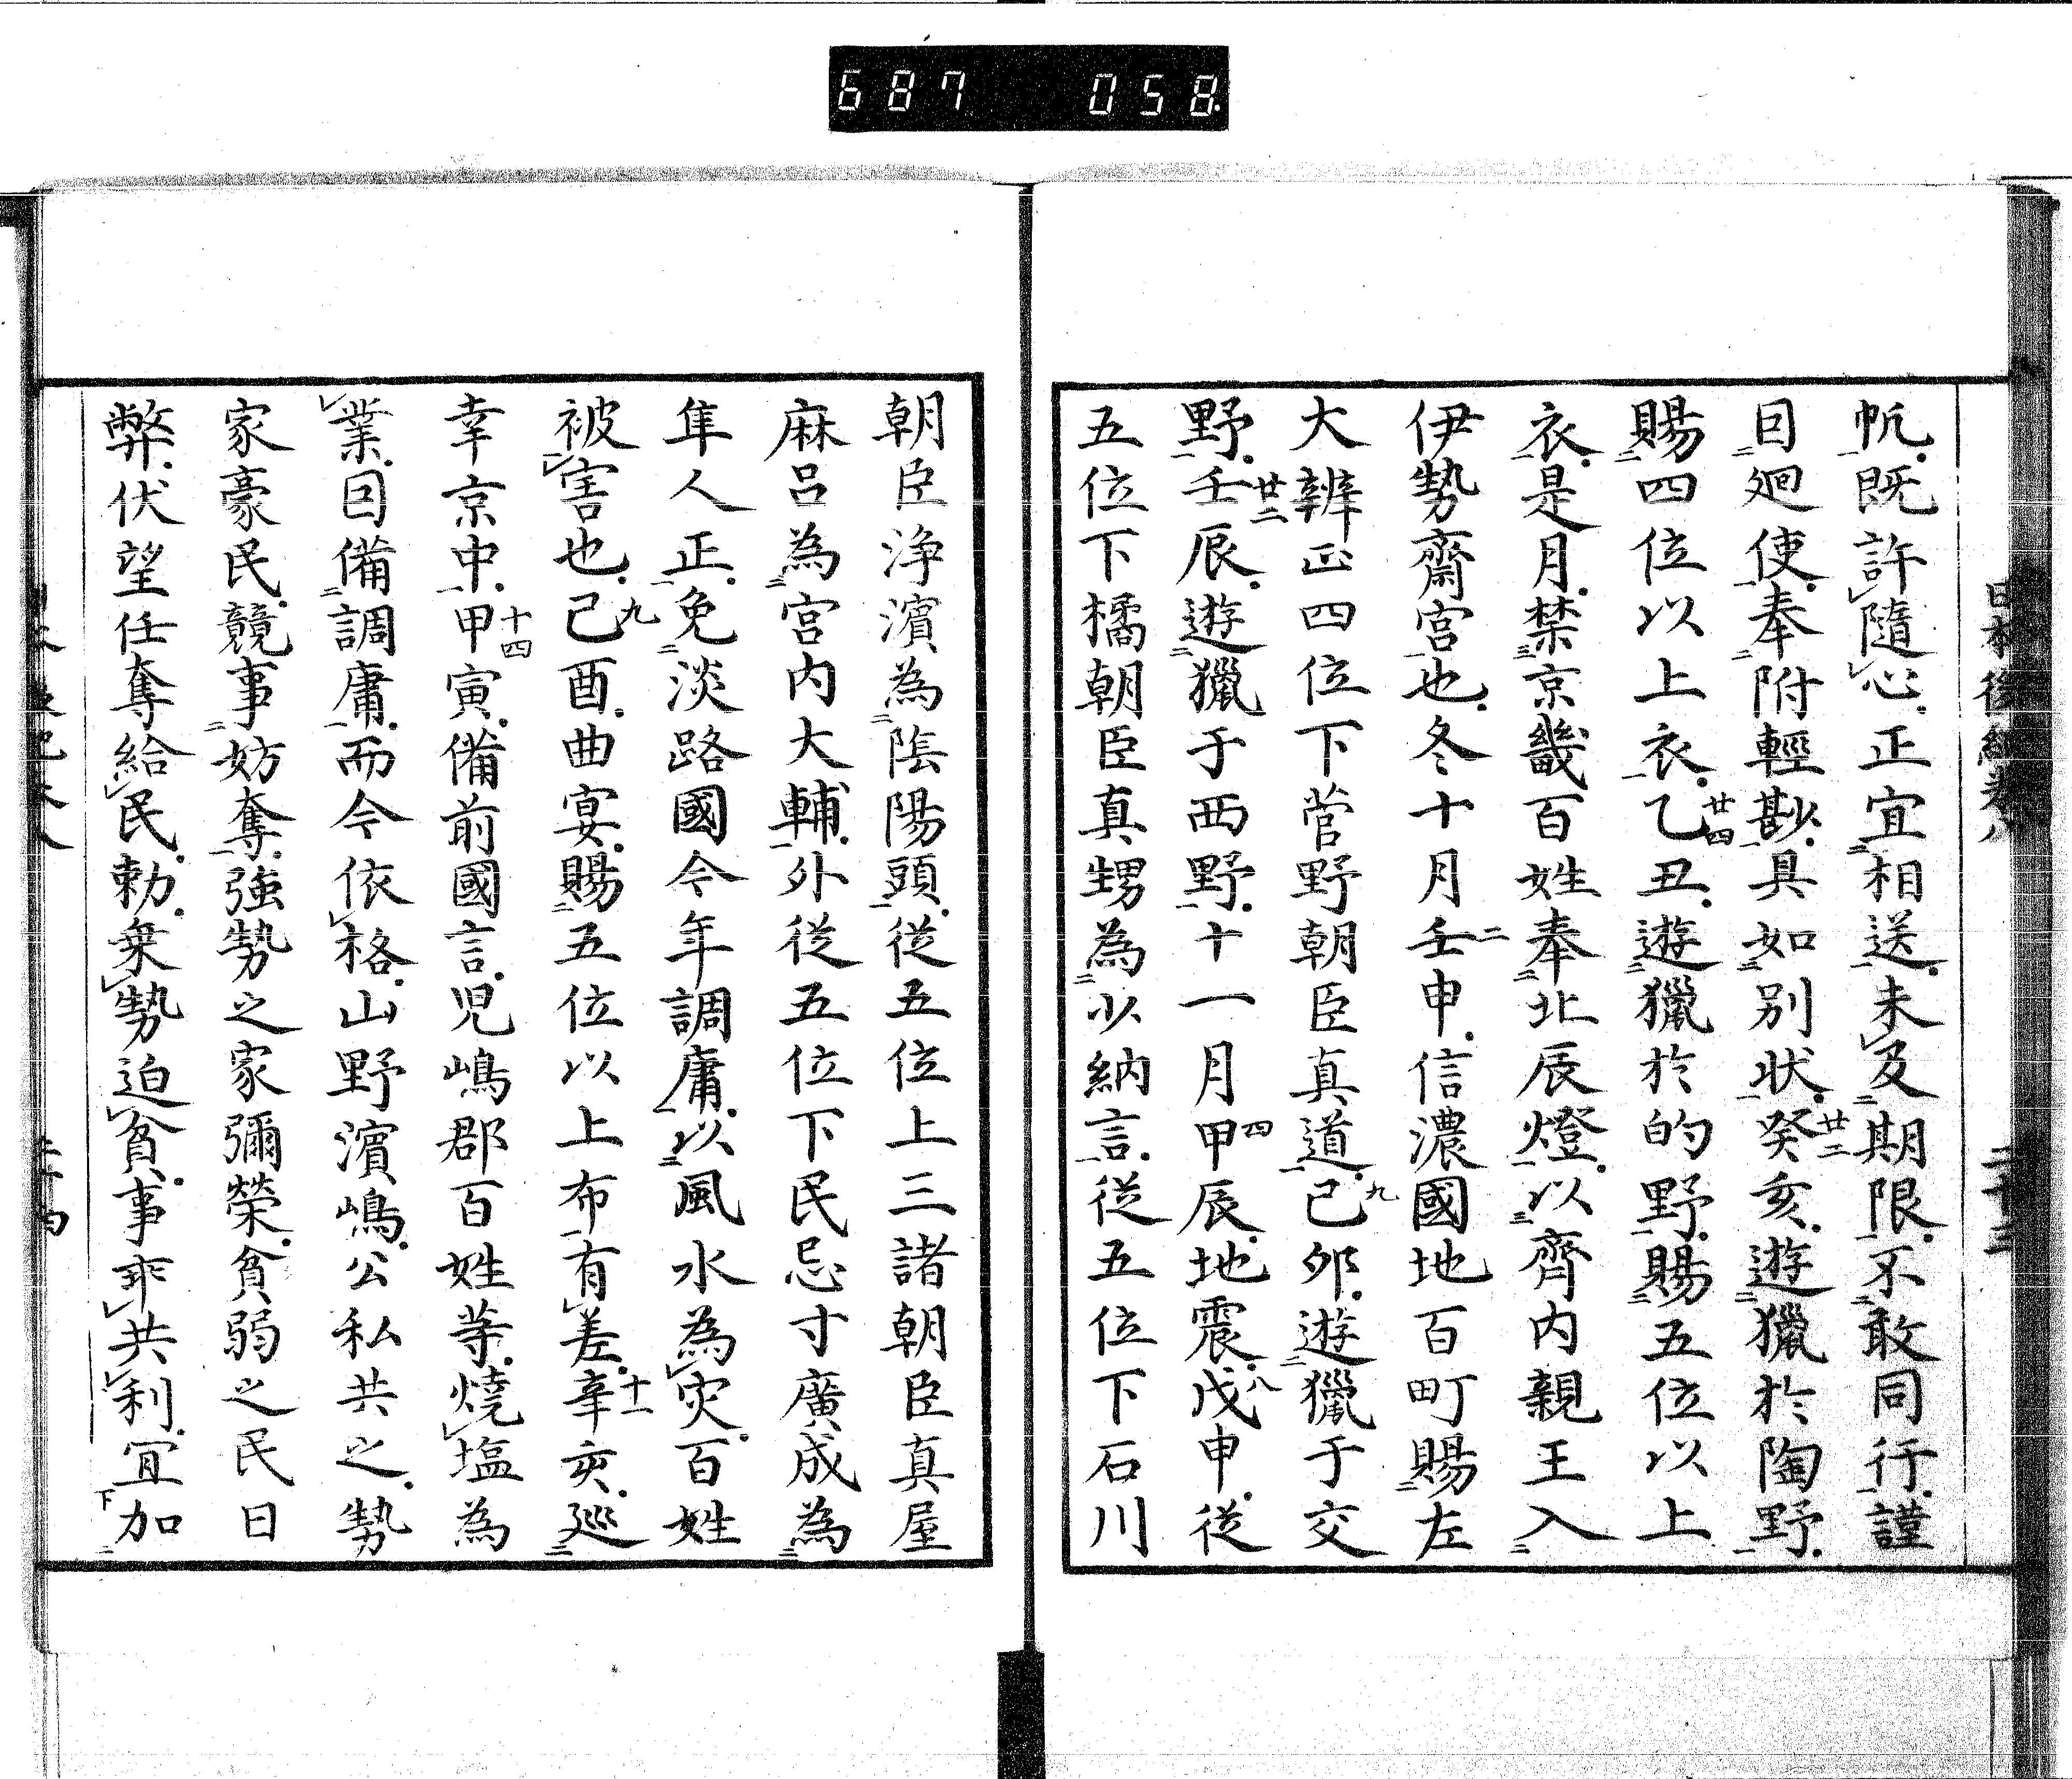 687 058
日本後紀卷八 二十三
帆。既許隨心。正宜相送。未及期限。不敢同行。謹
因廻使。奉附輕尠。具如別状。癸亥。遊獵於陶野。
賜四位以上衣。乙丑。遊獵於的野。賜五位以上
衣。是月。禁京畿百姓奉北辰燈。以齊内親王入
伊勢齋宮也。冬十月壬申。信濃國地百町賜左
大辨正四位下菅野朝臣真道。己夘。遊獵于交
野。壬辰。遊獵于西野。十一月甲辰。地震。戊申。從
五位下橘朝臣真甥為少納言。從五位下石川
朝臣浄濱為陰陽頭。從五位上三諸朝臣真屋
麻呂為宮内大輔。外從五位下民忌寸廣成為
隼人正。免淡路國今年調庸。以風水為灾。百姓
被害也。己酉。曲宴。賜五位以上布有差。辛亥。巡
幸京中。甲寅。備前國言。児嶋郡百姓等。燒塩為
業。因備調庸。而今依格。山野濱嶋。公私共之。勢
家豪民。競事妨奪。強勢之家彌榮。貧弱之民日
弊。伏望任奪給民。勅。乗勢迫貧。事乖共利。宜加